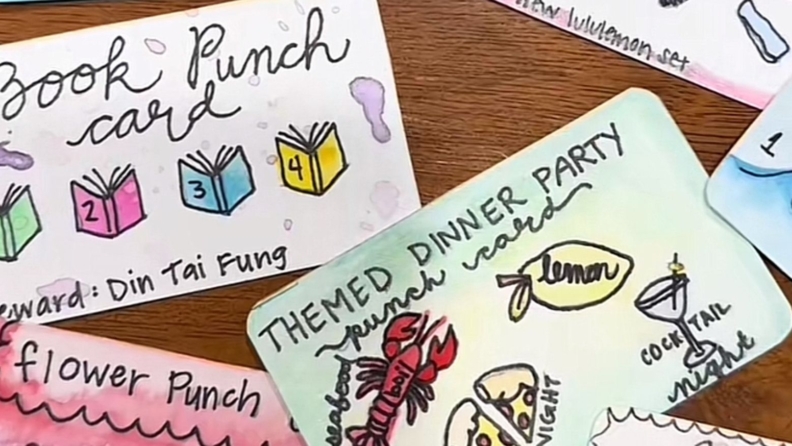 Book Punch
card
2
3
4
Reward: Din Tai Fung
new lululemon set
1
THEMED DINNER PARTY
punch card
lemon
COCKTAIL
night
seafood
NIGHT
flower Punch